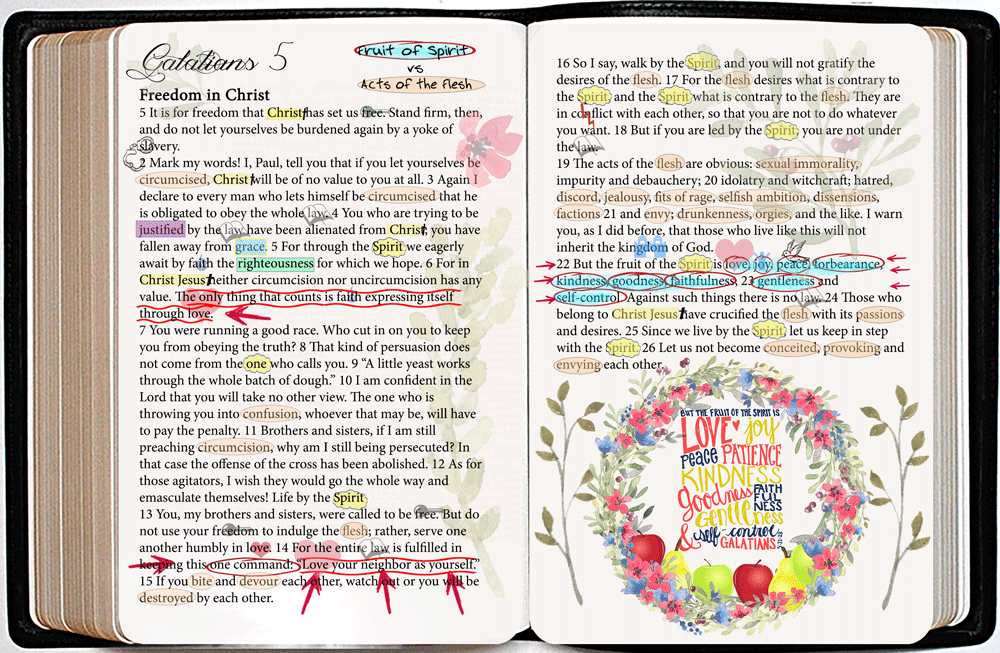 Galatians 5
Fruit of Spirit
vs
Acts of the flesh
Freedom in Christ
5 It is for freedom that Christ has set us free. Stand firm, then,
and do not let yourselves be burdened again by a yoke of
slavery.
2 Mark my words! I, Paul, tell you that if you let yourselves be
circumcised, Christ will be of no value to you at all. 3 Again I
declare to every man who lets himself be circumcised that he
is obligated to obey the whole law. 4 You who are trying to be
justified by the law have been alienated from Christ; you have
fallen away from grace. 5 For through the Spirit we eagerly
await by faith the righteousness for which we hope. 6 For in
Christ Jesus neither circumcision nor uncircumcision has any
value. The only thing that counts is faith expressing itself
through love.
7 You were running a good race. Who cut in on you to keep
you from obeying the truth? 8 That kind of persuasion does
not come from the one who calls you. 9 “A little yeast works
through the whole batch of dough.” 10 I am confident in the
Lord that you will take no other view. The one who is
throwing you into confusion, whoever that may be, will have
to pay the penalty. 11 Brothers and sisters, if I am still
preaching circumcision, why am I still being persecuted? In
that case the offense of the cross has been abolished. 12 As for
those agitators, I wish they would go the whole way and
emasculate themselves! Life by the Spirit
13 You, my brothers and sisters, were called to be free. But do
not use your freedom to indulge the flesh; rather, serve one
another humbly in love. 14 For the entire law is fulfilled in
keeping this one command: “Love your neighbor as yourself.”
15 If you bite and devour each other, watch out or you will be
destroyed by each other.
16 So I say, walk by the Spirit, and you will not gratify the
desires of the flesh. 17 For the flesh desires what is contrary to
the Spirit, and the Spirit what is contrary to the flesh. They are
in conflict with each other, so that you are not to do whatever
you want. 18 But if you are led by the Spirit, you are not under
the law.
19 The acts of the flesh are obvious: sexual immorality,
impurity and debauchery; 20 idolatry and witchcraft; hatred,
discord, jealousy, fits of rage, selfish ambition, dissensions,
factions 21 and envy; drunkenness, orgies, and the like. I warn
you, as I did before, that those who live like this will not
inherit the kingdom of God.
22 But the fruit of the Spirit is love, joy, peace, forbearance,
kindness, goodness, faithfulness, 23 gentleness and
self-control. Against such things there is no law. 24 Those who
belong to Christ Jesus have crucified the flesh with its passions
and desires. 25 Since we live by the Spirit, let us keep in step
with the Spirit. 26 Let us not become conceited, provoking and
envying each other.
BUT THE FRUIT OF THE SPIRIT IS
LOVE joy
Peace PATIENCE
KINDNESS
goodness FAITH
FUL
NESS
Gentleness
& self-control
GALATIANS 5:22-23